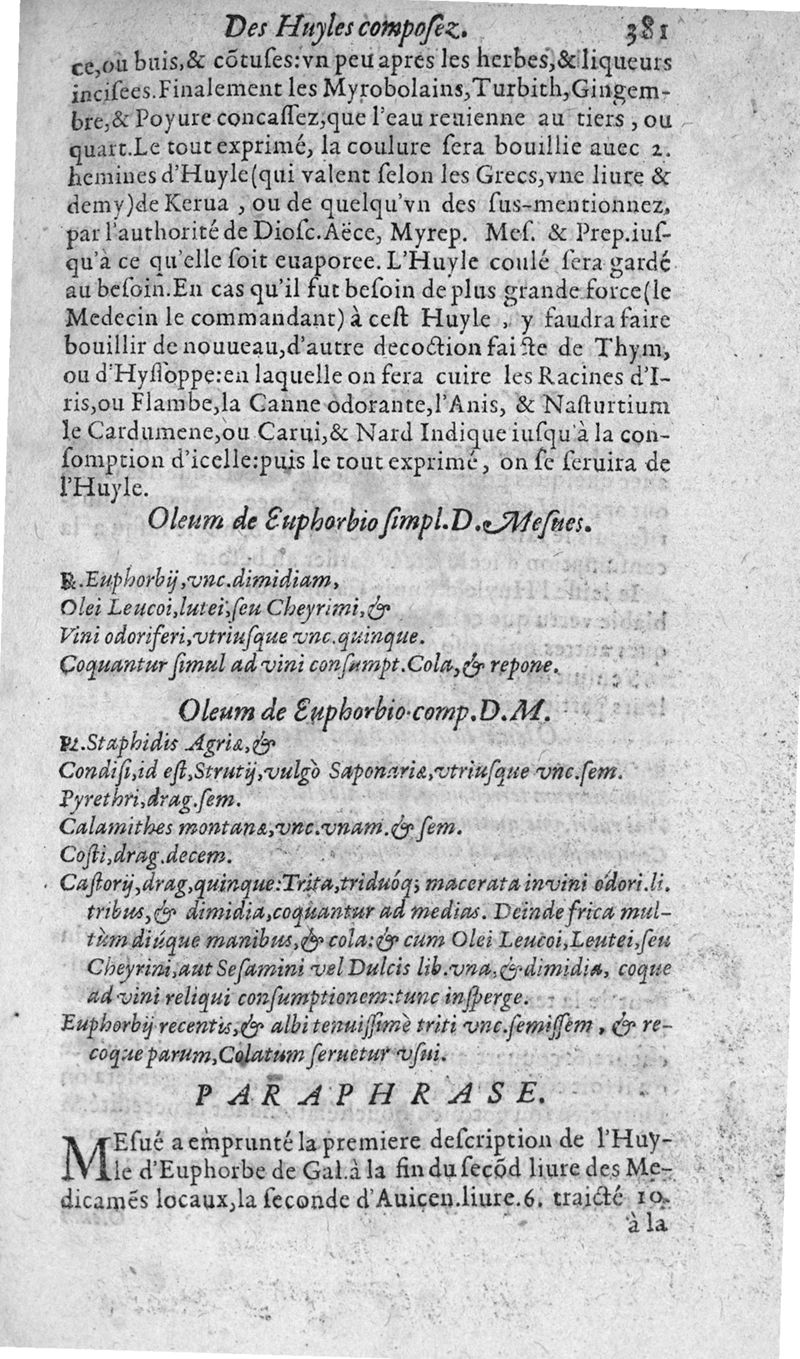 Des Huyles composez. 381
ce,ou buis,& cōtuses:vn peu apres les herbes,& liqueurs
incisées.Finalement les Myrobolains,Turbith,Gingem-
bre,& Poyure concassez,que l'eau reuienne au tiers , ou
quart.Le tout exprimé, la coulure sera bouillie auec 2.
hemines d'Huyle(qui valent selon les Grecs,vne liure &
demy)de Kerua , ou de quelqu'vn des sus-mentionnez,
par l'authorité de Diosc.Aëce, Myrep. Mes. & Prep.ius-
qu'à ce qu'elle soit euaporee. L'Huyle coulé sera gardé
au besoin.En cas qu'il fut besoin de plus grande force(le
Medecin le commandant) à cest Huyle , y faudra faire
bouillir de nouueau,d'autre decoction faicte de Thym,
ou d'Hyssoppe:en laquelle on fera cuire les Racines d'I-
ris,ou Flambe,la Canne odorante,l'Anis, & Nasturtium
le Cardumene,ou Carui,& Nard Indique iusqu'à la con-
somption d'icelle:puis le tout exprimé, on se seruira de
l'Huyle.
Oleum de Euphorbio simpl.D.Mesues.
℞.Euphorbij,vnc.dimidiam,
Olei Leucoi,lutei,seu Cheyrimi,&
Vini odoriferi,vtriusque vnc.quinque.
Coquantur simul ad vini consumpt.Cola,& repone.
Oleum de Euphorbio comp.D.M.
℞.Staphidis Agriæ,&
Condisi,id est,Strutij,vulgò Saponariæ,vtriusque vnc.sem.
Pyrethri,drag.sem.
Calamithes montanæ,vnc.vnam.& sem.
Costi,drag.decem.
Castorij,drag,quinque:Trita,triduóq; macerata in vini odori.li.
tribus,& dimidia,coquantur ad medias. Deinde frica mul-
tùm diúque manibus,& cola:& cum Olei Leucoi,Leutei,seu
Cheyrini,aut Sesamini vel Dulcis lib.vna,& dimidia, coque
ad vini reliqui consumptionem:tunc insperge.
Euphorbij recentis,& albi tenuissimè triti vnc.semissem , & re-
coque parum,Colatum seruetur vsui.
PARAPHRASE.
MEsué a emprunté la premiere description de l'Huy-
le d'Euphorbe de Gal.à la fin du secōd liure des Me-
dicamēs locaux,la seconde d'Auicen.liure.6. traicté 10.
à la